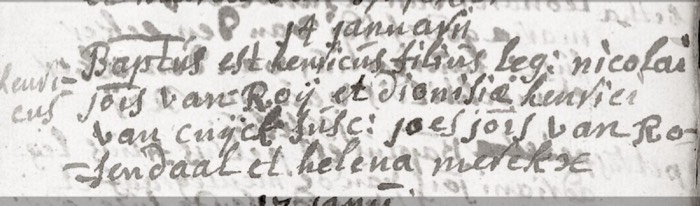 14 januarii
henri=
cus
Baptus est henricus filius leg: nicolai
jois van Roij et dionisiæ henrici
van cuijck susc: joes jois van Ro=
=sendaal et helena merckx
17 janii